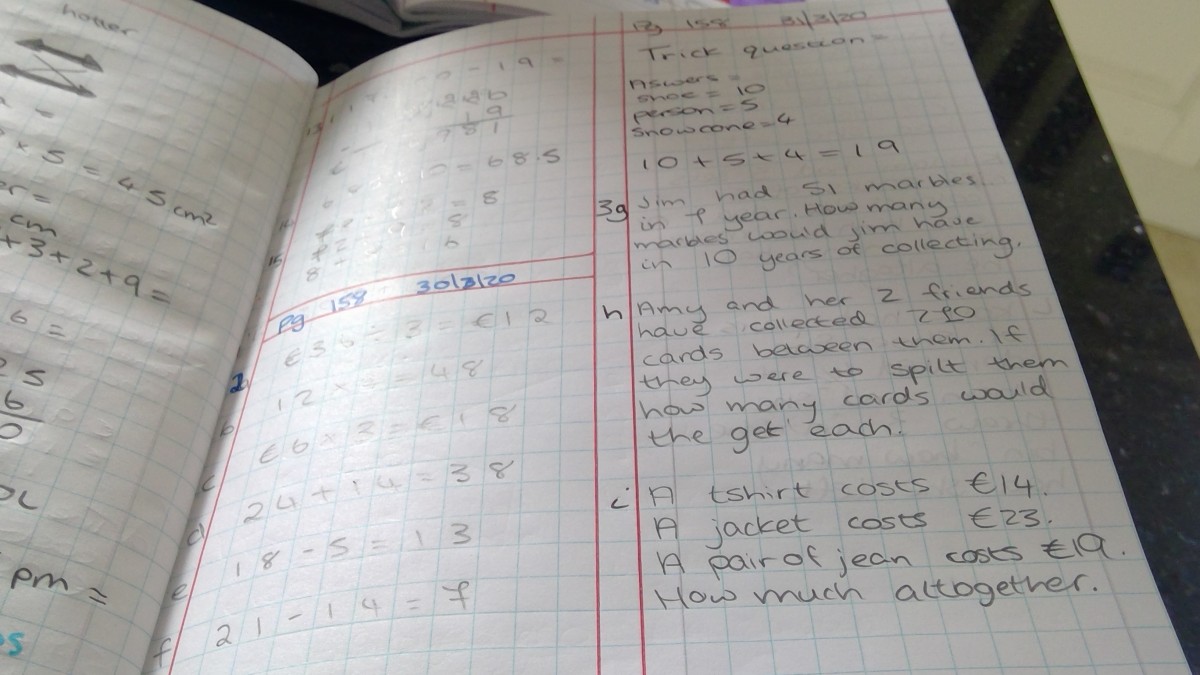 hotter
× 5 = 45 cm²
cm
+ 3 + 2 + 9 =
6 =
5
6
0
pm =
- 19 =
19
= 68.5
= 8
8
Pg 158 30/3/20
€36 ÷ 3 = €12
b 12 × = 48
c €6 × 3 = €18
d 24 + 14 = 38
e 18 - 5 = 13
f 21 - 14 = 7
Pg 158 31/3/20
Trick question =
Aswers =
shoe = 10
person = 5
snowcone = 4
10 + 5 + 4 = 19
3g Jim had 51 marbles
in year. How many
marbles would jim have
in 10 years of collecting.
h Amy and her 2 friends
have collected
cards between them. If
they were to spilt them
how many cards would
the get each.
i A tshirt costs €14.
A jacket costs €23.
A pair of jean costs €19.
How much altogether.